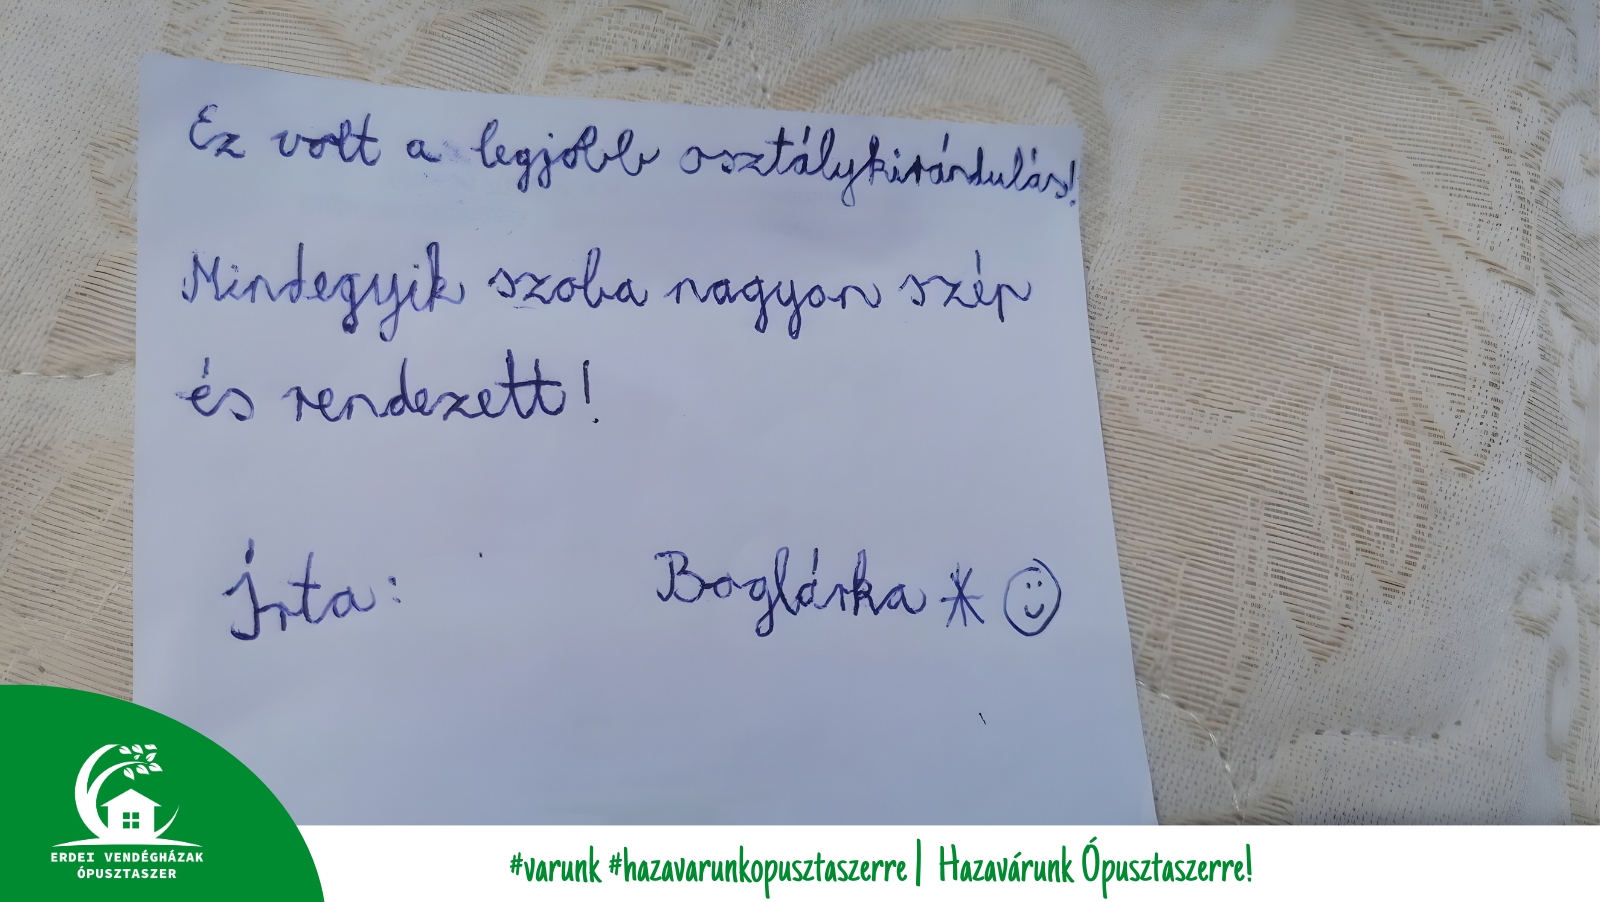 Ez volt a legjobb osztálykirándulás!
Mindegyik szoba nagyon szép
és rendezett!
Írta: Boglárka
ERDEI VENDÉGHÁZAK
ÓPUSZTASZER
#varunk #hazavarunkopusztaszerre | Hazavárunk Ópusztaszerre!